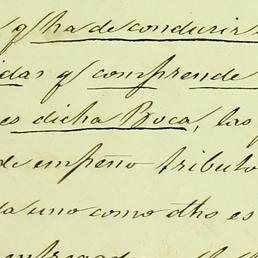 q̃ ha de conducir
idas q̃ comprende
es dicha Boca, las
de empeño tributo
da uno como dhos es
entregado